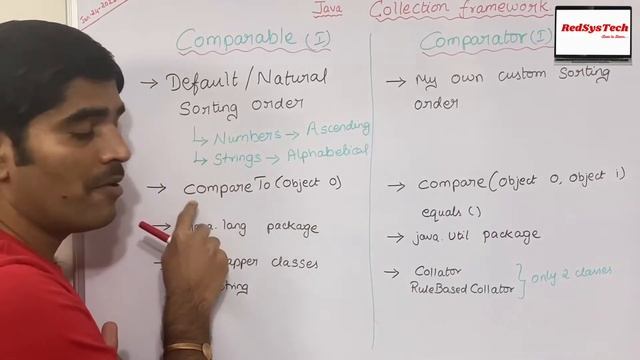 Jan-24-202
Java Collection framework
RedSysTech
Comparable (I)
→ Default/Natural
Sorting order
↳ Numbers → Ascending
↳ Strings → Alphabetical
→ compareTo(Object o)
lang package
classes
Comparator (I)
→ My own custom sorting
order
→ compare(Object o, Object 1)
equals()
→ java.util package
→ Collator
RuleBasedCollator } only 2 classes